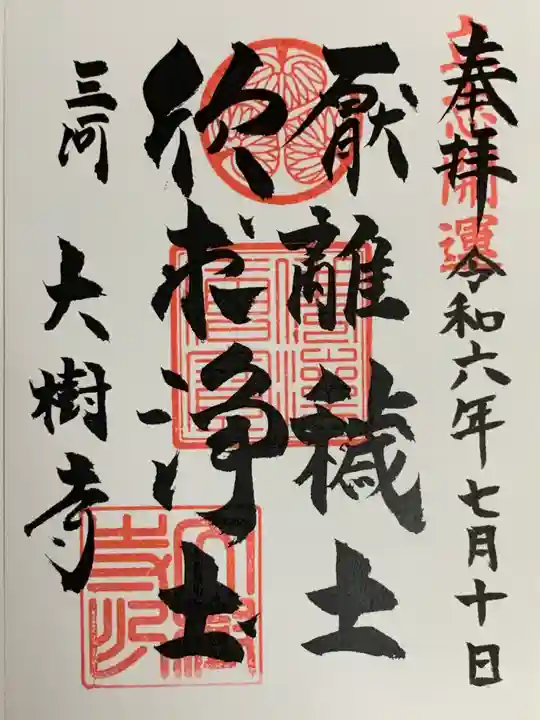 奉拝 令和六年七月十日
開運
厭離穢土
欣求浄土
三河 大樹寺